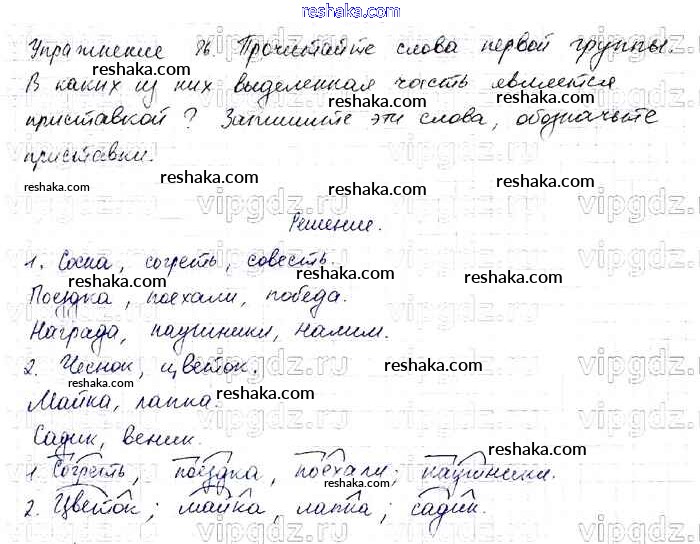 reshaka.com
Упражнение 86. Прочитайте слова первой группы.
reshaka.com reshaka.com
В каких из них выделенная часть является
reshaka.com reshaka.com
приставкой? Запишите эти слова, обозначьте
приставки.
reshaka.com reshaka.com reshaka.com
vipgdz.ru vipgdz.ru vipgdz.ru
Решение.
1. Сосна, согреть, совесть.
reshaka.com reshaka.com
Поездка, поехали, победа.
reshaka.com
Награда, наушники, налим.
2. Чеснок, цветок.
reshaka.com reshaka.com
vipgdz.ru vipgdz.ru vipgdz.ru
Майка, лапка.
reshaka.com
Садик, веник.
reshaka.com
1. Согреть, поездка, поехали; наушники.
reshaka.com
2. Цветок; майка, лапка; садик.
reshaka.com reshaka.com